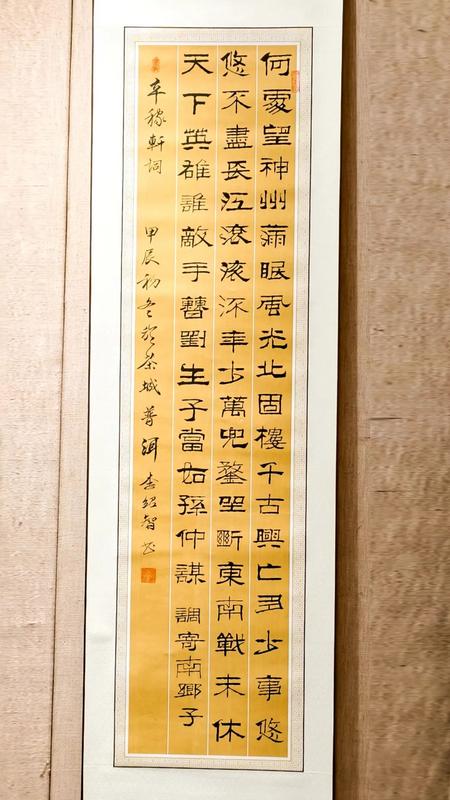 何處望神州滿眼風光北固樓千古興亡多少事悠
悠不盡長江滾滾流年少萬兜鍪坐斷東南戰未休
天下英雄誰敵手曹劉生子當如孫仲謀 調寄南鄉子
辛稼軒詞 甲辰初冬於茶城普洱 李紹智书